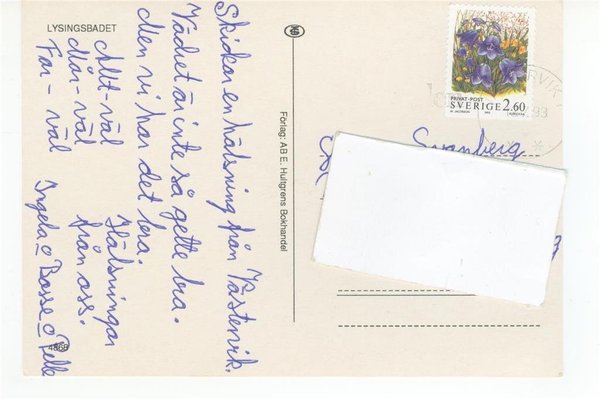 LYSINGSBADET
Skickar en hälsning från Västervik.
Vädret är inte så jätte bra.
Men vi har det bra.
Hälsningar
från oss.
Ingela o Bosse o Pelle
Allt-väl
Mår-väl
Far-väl
4868
Förlag: AB E. Hullgrens Bokhandel
PRIVAT-POST
SVERIGE 2.60
93
Svanberg